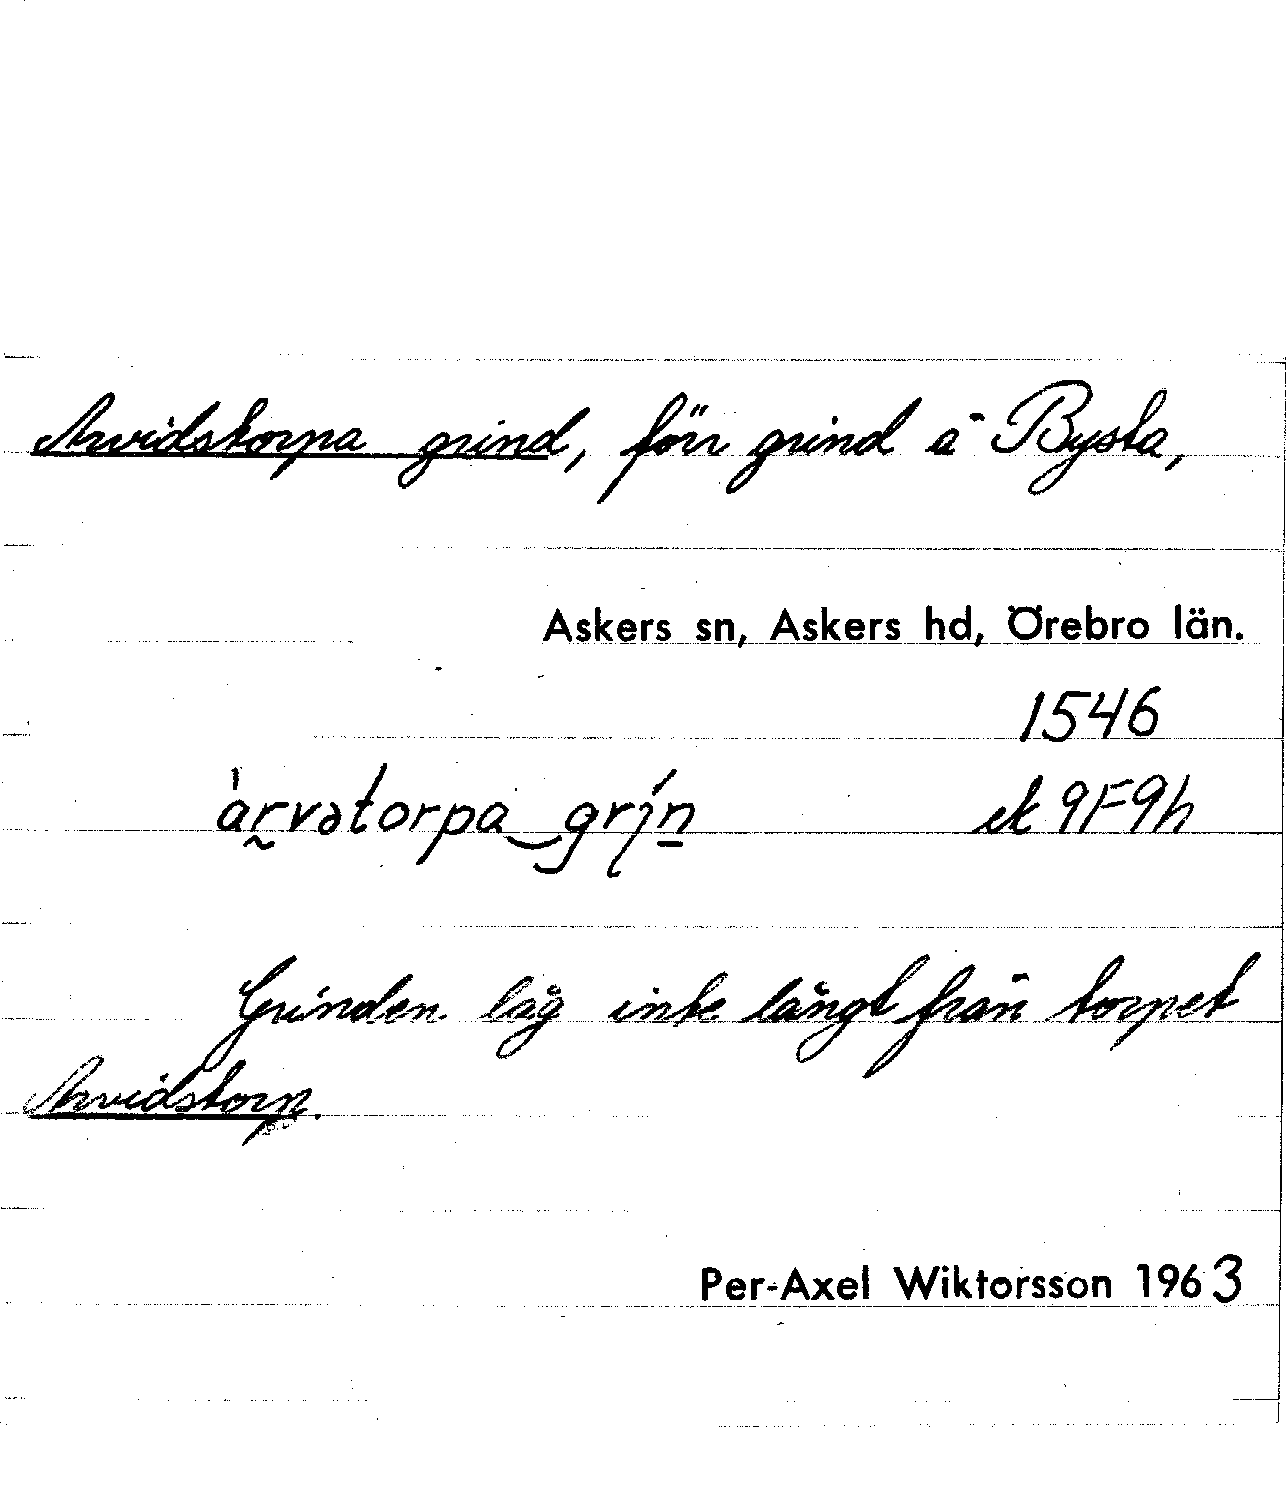 Arvidstorpa grind, förr grind å Bysta,
Askers sn, Askers hd, Örebro län.
1546
àrvatorpa grín ek 9F9h
Grinden låg inte långt från torpet
Arvidstorp.
Per-Axel Wiktorsson 1963